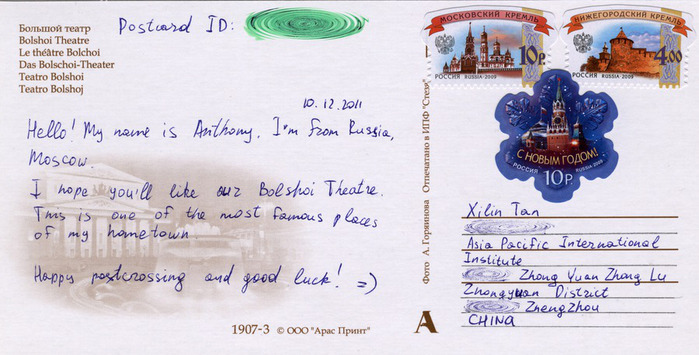 Большой театр
Bolshoi Theatre
Le théâtre Bolchoi
Das Bolschoi-Theater
Teatro Bolshoi
Teatro Bolshoj
Postcard ID:
10.12.2011
Hello! My name is Anthony. I'm from Russia,
Moscow.
I hope you'll like our Bolshoi Theatre.
This is one of the most famous places
of my hometown
Happy postcrossing and good luck! =)
1907-3 © ООО "Арас Принт"
Фото А. Горяинова Отпечатано в ИПФ
МОСКОВСКИЙ КРЕМЛЬ
10р.
РОССИЯ RUSSIA·2009
НИЖЕГОРОДСКИЙ КРЕМЛЬ
4.00
РОССИЯ RUSSIA·2009
С НОВЫМ ГОДОМ!
РОССИЯ
10 Р.
Xilin Tan
Asia Pacific International
Institute
Zhong Yuan Zhong Lu
Zhongyuan District
ZhengZhou
CHINA
А